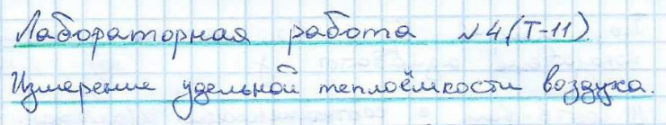 Лабораторная работа №4 (Т-11).
Измерение удельной теплоёмкости воздуха.